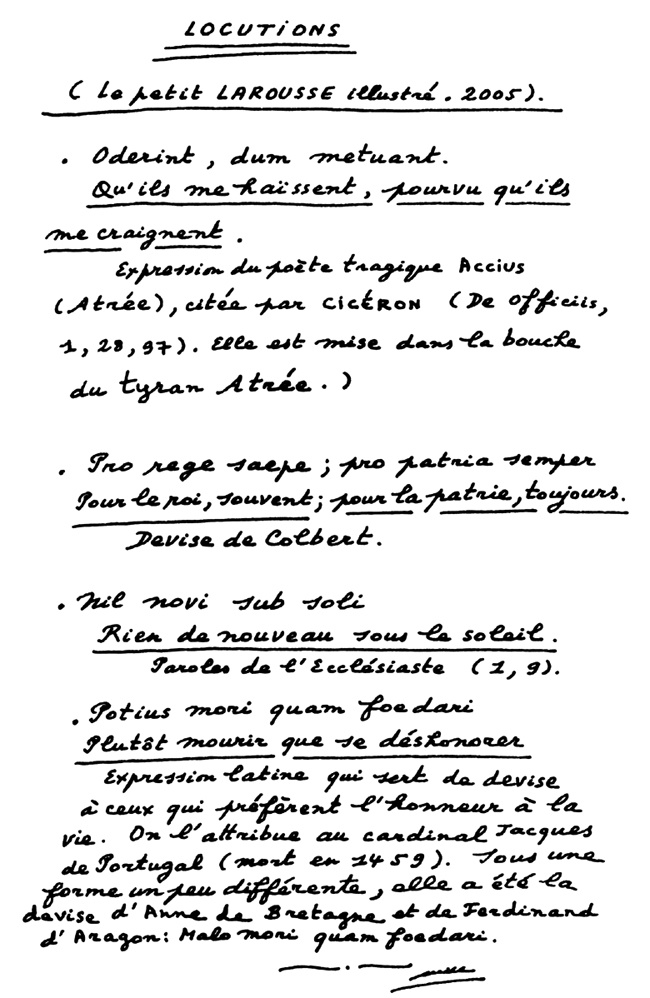 LOCUTIONS
( Le petit LAROUSSE illustré . 2005).
. Oderint, dum metuant.
Qu'ils me haïssent, pourvu qu'ils
me craignent .
Expression du poète tragique Accius
(Atrée), citée par CICÉRON ( De officiis,
1, 28, 97). Elle est mise dans la bouche
du tyran Atrée . )
. Pro rege saepe ; pro patria semper
Pour le roi, souvent ; pour la patrie, toujours.
Devise de Colbert.
. Nil novi sub soli
Rien de nouveau sous le soleil .
Paroles de l'Ecclésiaste (1, 9).
. Potius mori quam foedari
Plutôt mourir que se déshonorer
Expression latine qui sert de devise
à ceux qui préfèrent l'honneur à la
vie. On l'attribue au cardinal Jacques
de Portugal (mort en 1459). Sous une
forme un peu différente, elle a été la
devise d'Anne de Bretagne et de Ferdinand
d'Aragon: Malo mori quam foedari.